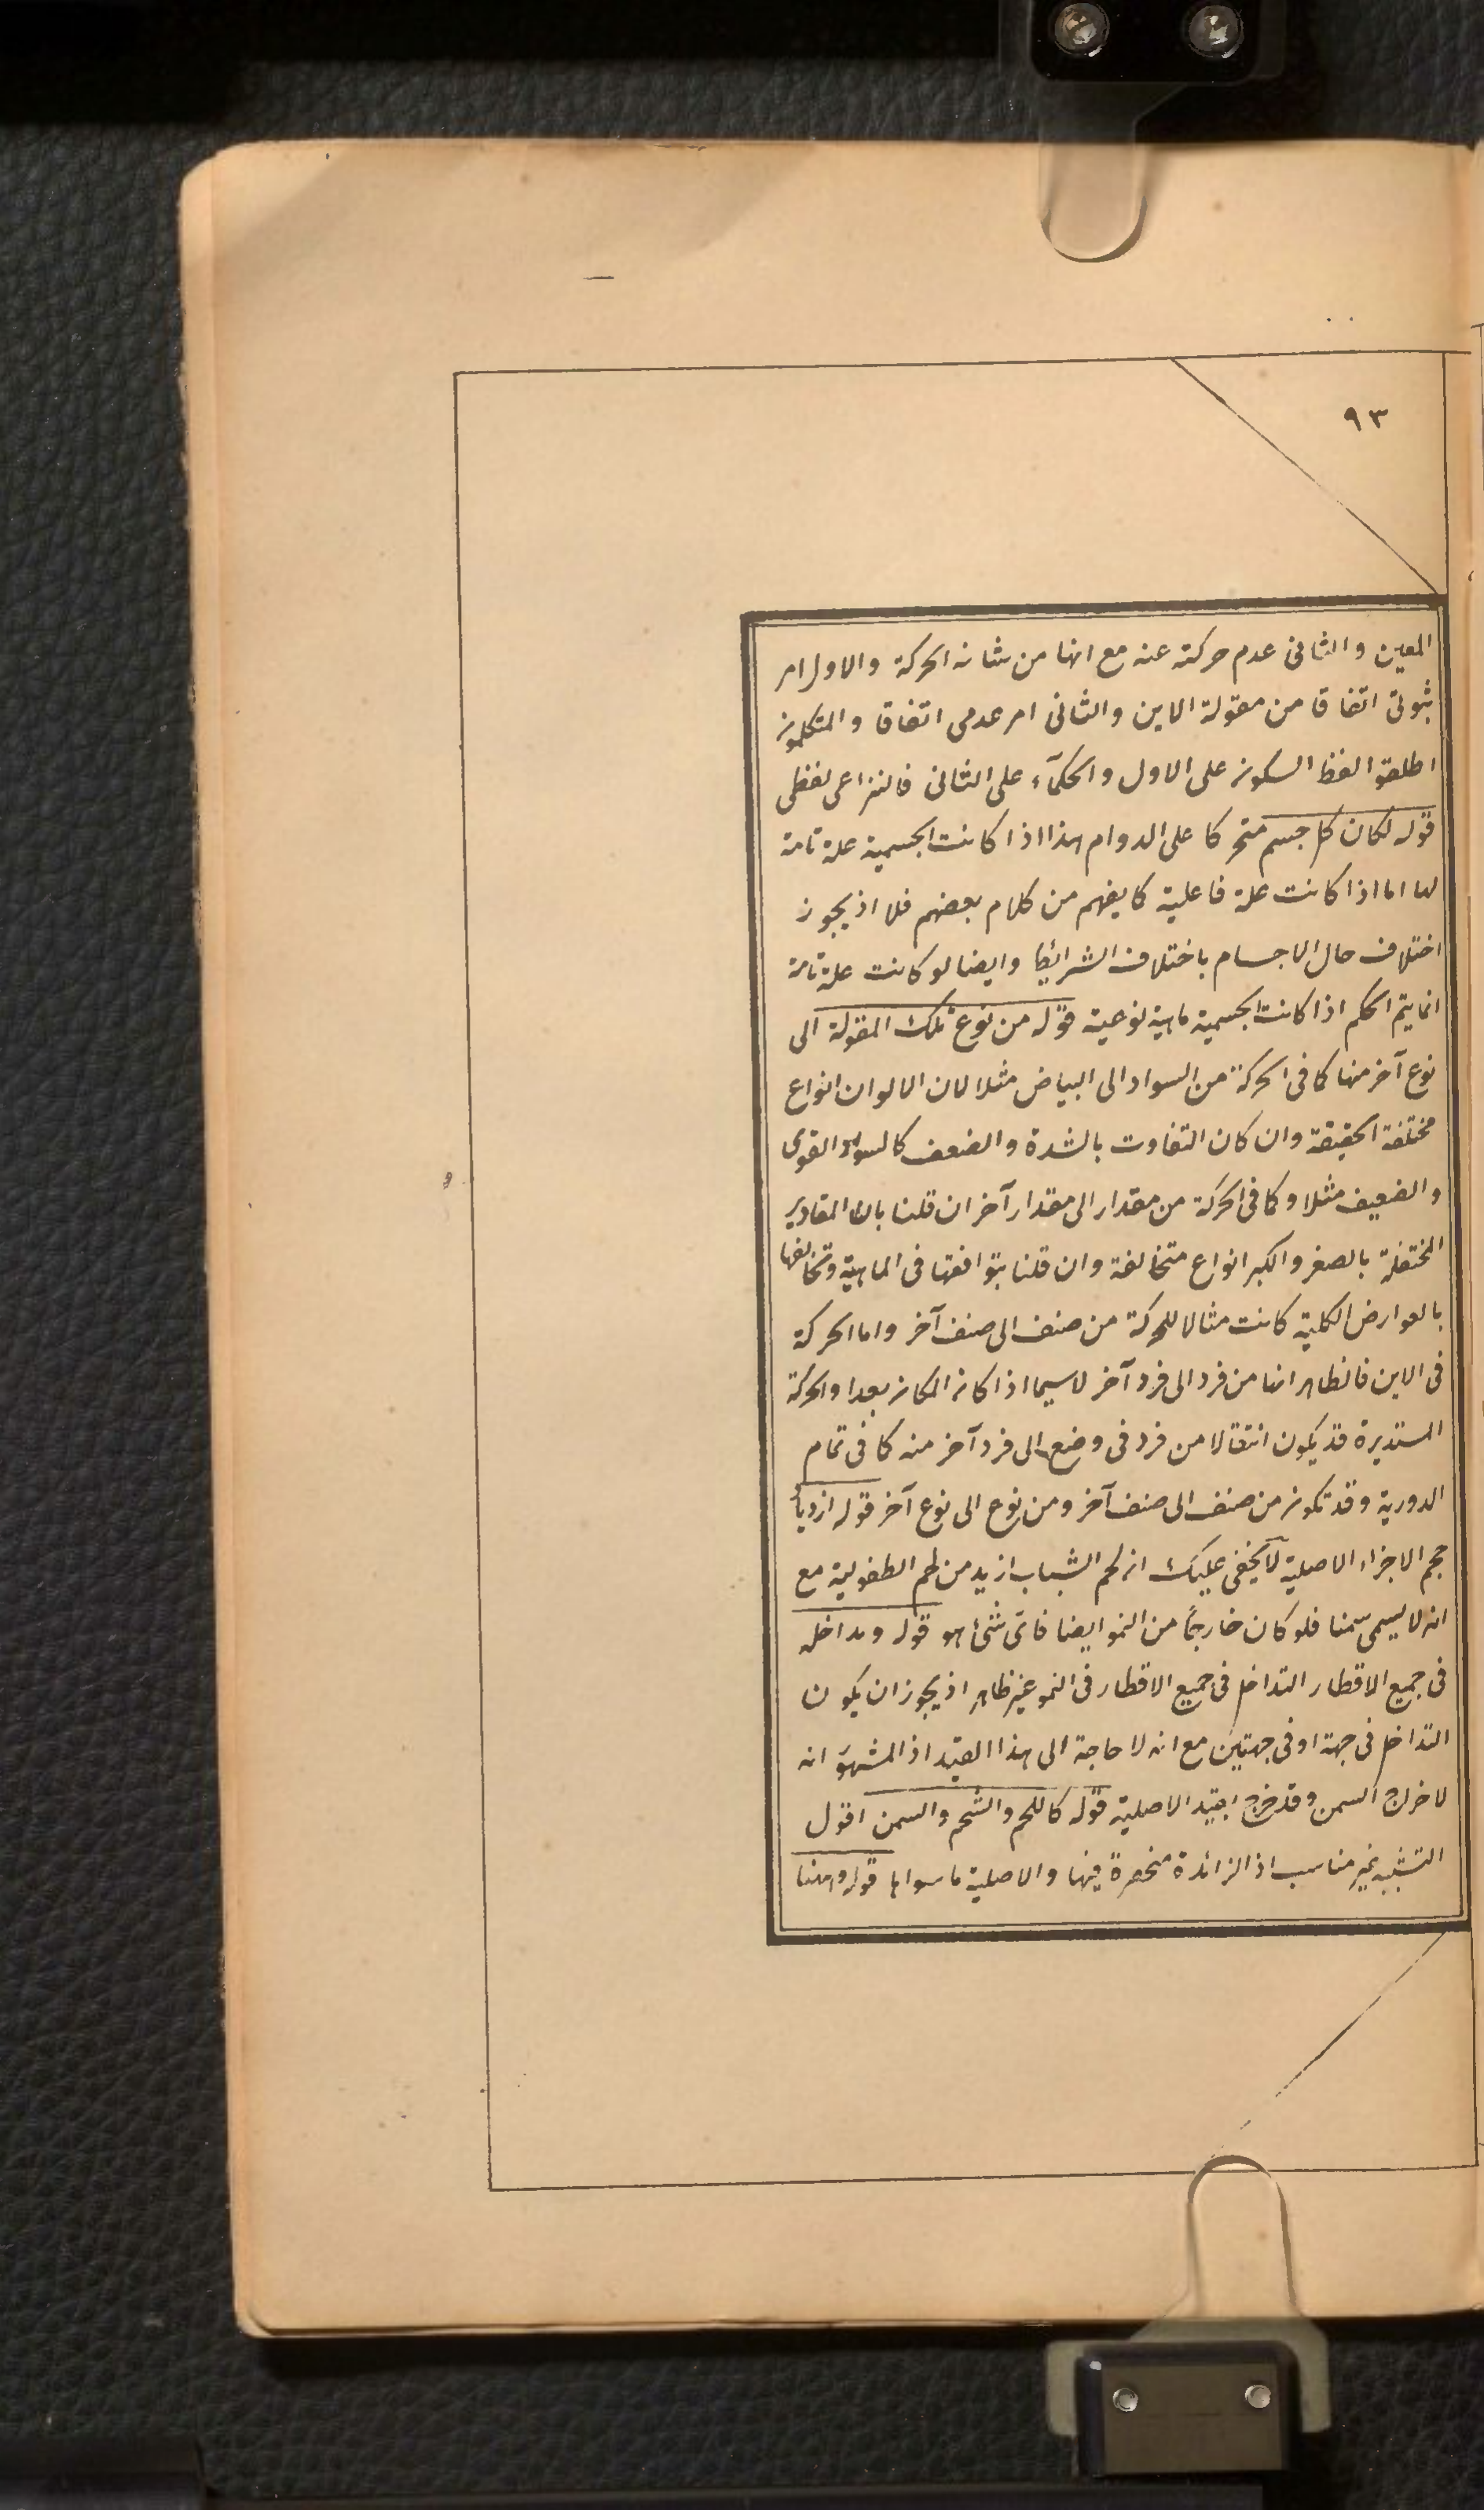 ٩٣
المعين والثانى عدم حركته عنه مع انها من شانه الحركة والاول امر
ثبوتى اتفاقا من مقولة الاين والثانى امر عدمى اتفاقا والمتكلمون
اطلقوا لفظ السكون على الاول والحكمآء على الثانى فالنزاعى لفظى
قوله لكان كل جسم متحركا على الدوام هذا اذا كانت الجسمية علة تامة
لها اما اذا كانت علة فاعلية كما يفهم من كلام بعضهم فلا اذ يجوز
اختلاف حال الاجسام باختلاف الشرائط وايضا لو كانت علة تامة
انما يتم الحكم اذا كانت الجسمية ماهية نوعية قوله من نوع تلك المقولة الى
نوع آخر منها كما فى الحركة من السواد الى البياض مثلا لان الالوان انواع
مختلفة الحقيقة وان كان التفاوت بالشدة والضعف كالسواد القوى
والضعيف مثلا وكما فى الحركة من مقدار الى مقدار آخر ان قلنا بان المقادير
المختفلة بالصغر والكبر انواع متخالفة وان قلنا بتوافقها فى الماهية وتخالفها
بالعوارض الكلية كانت مثالا للحركة من صنف الى صنف آخر واما الحركة
فى الاين فالظاهر انها من فرد الى فرد آخر لاسيما اذا كان المكان بعدا والحركة
المستديرة قد يكون انتقالا من فرد فى وضع الى فرد آخر منه كما فى تمام
الدورية وقد تكون من صنف الى صنف آخر ومن نوع الى نوع آخر قوله ازدياد
حجم الاجزاء الاصلية لا يخفى عليك ان لحم الشباب ازيد من لحم الطفولية مع
انه لا يسمى سمنا فلو كان خارجًا من النمو ايضا فاى شئ هو قوله ومداخله
فى جميع الاقطار التداخل فى جميع الاقطار فى النمو غير ظاهر اذ يجوز ان يكون
التداخل فى جهة او فى جهتين مع انه لا حاجة الى هذا القيد اذ المشهور انه
لاخراج السمن وقد خرج بقيد الاصلية قوله كاللحم والشحم والسمن اقول
التشبيه غير مناسب اذ الزائدة منحصرة فيها والاصلية ما سواها قوله وههنا